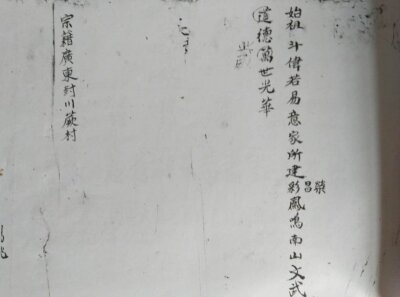 始祖斗偉若易意家所建影鳳鳴南山文武
榮昌
道德萬世光華
宗籍廣東封川蕨村